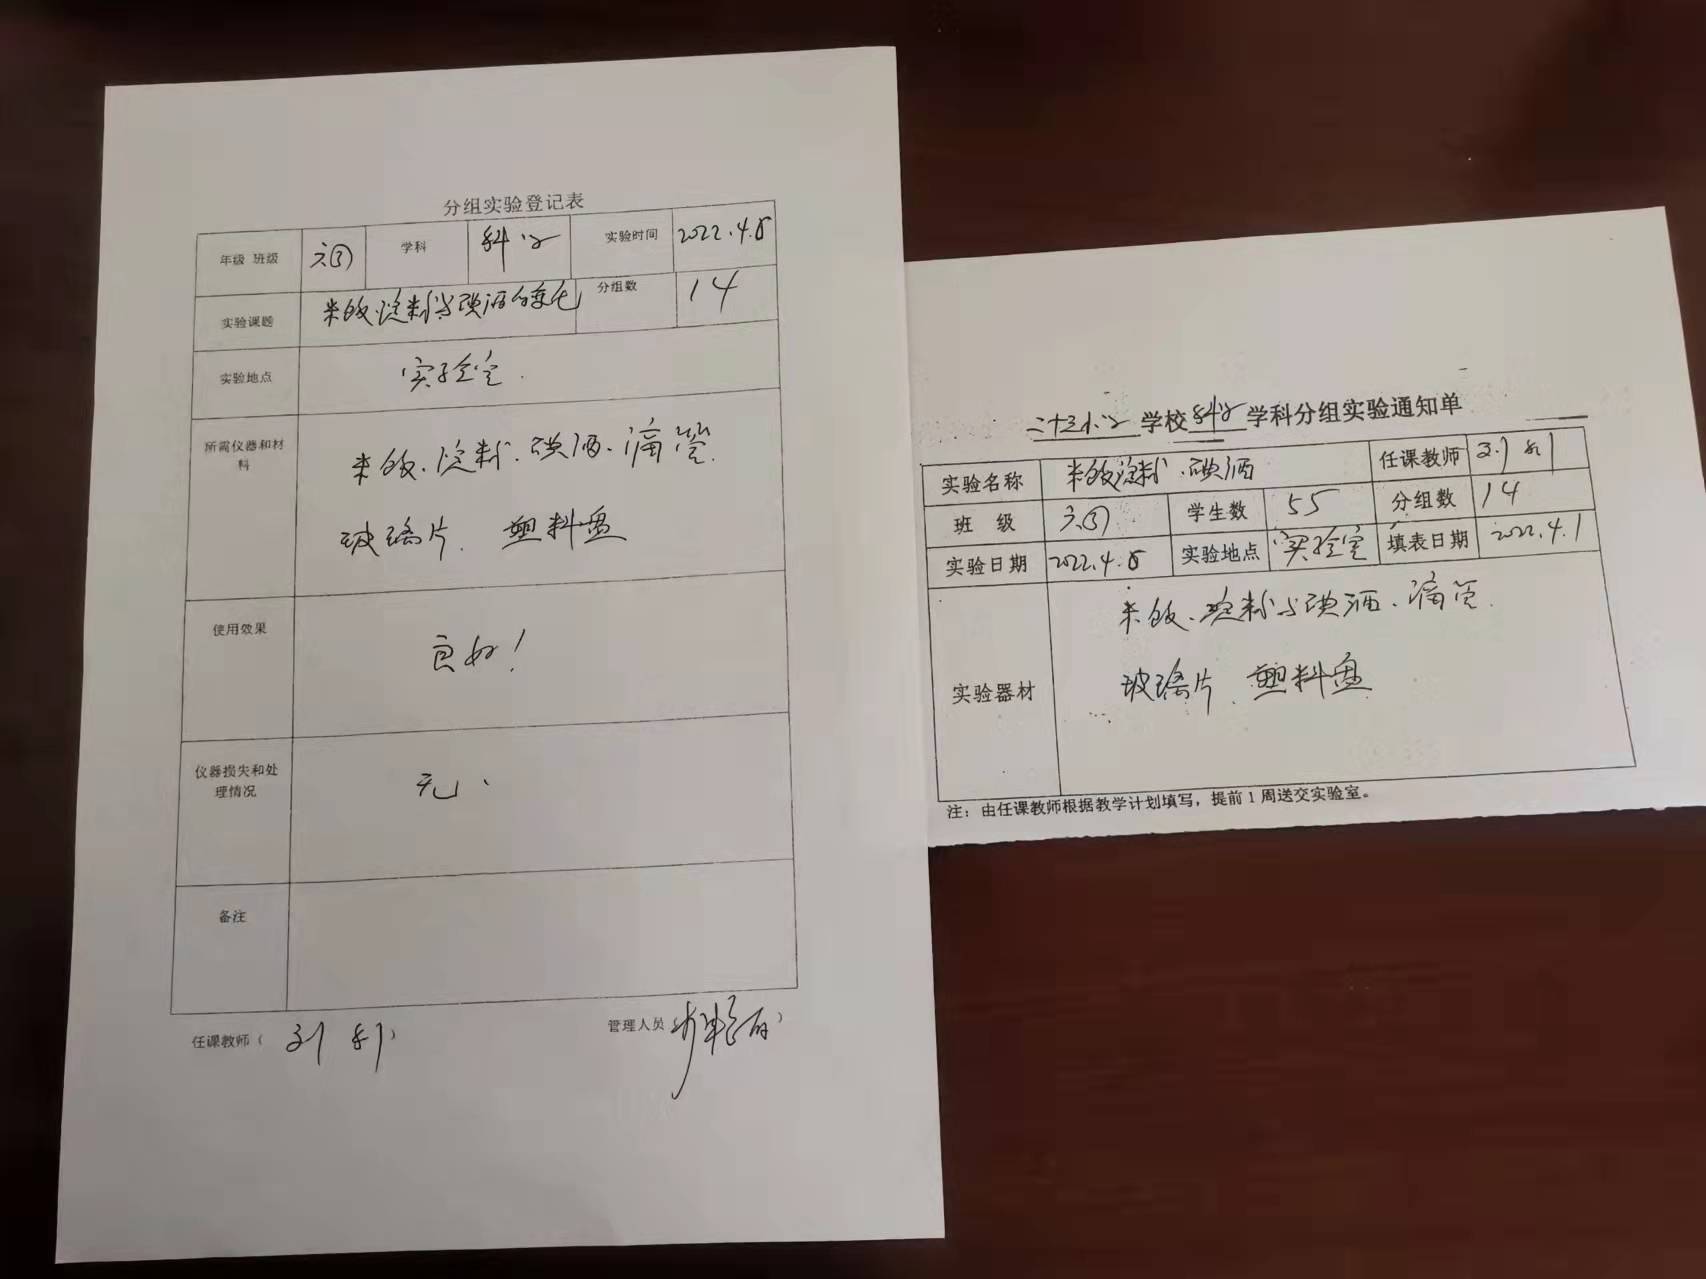 分组实验登记表
年级 班级 六③ 学科 科学 实验时间 2022.4.8
实验课题 米饭、淀粉与碘酒的变化 分组数 14
实验地点 实验室.
所需仪器和材料 米饭、淀粉、碘酒、滴管.
玻璃片、塑料盘
使用效果 良好!
仪器损失和处理情况 无、
备注
任课教师( 刘 )
管理人员( )
二十三小学 学校 科学 学科分组实验通知单
实验名称 米饭淀粉、碘酒 任课教师 刘
班 级 六③ 学生数 55 分组数 14
实验日期 2022.4.8 实验地点 实验室 填表日期 2022.4.1
实验器材 米饭、淀粉与碘酒、滴管.
玻璃片、塑料盘
注：由任课教师根据教学计划填写，提前1周送交实验室。